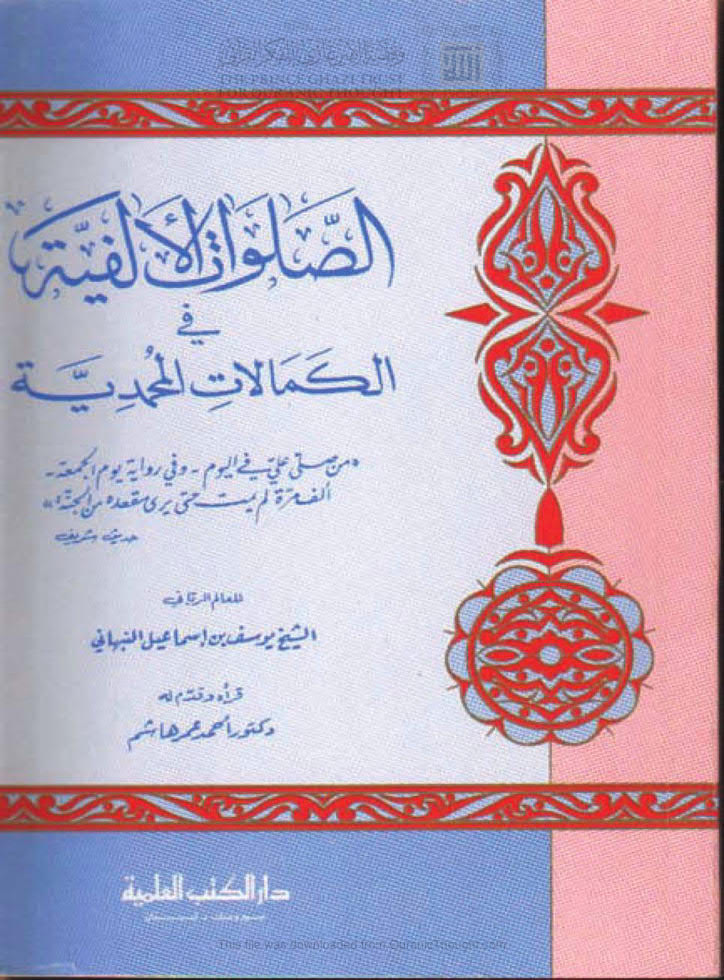 وقفية الأمير غازي للفكر القرآني
THE PRINCE GHAZI TRUST
FOR QUR'ANIC THOUGHT
الصَّلَوَاتُ الأَلْفِيَّة
في
الكَمَالَاتِ المُحَمَّدِيَّة
«من صلى عليّ في اليوم - وفي رواية يوم الجمعة -
ألف مرة لم يمت حتى يرى مقعده من الجنة»
حديث شريف
للعالم الرباني
الشيخ يوسف بن إسماعيل النبهاني
قرأه وقدم له
دكتور أحمد عمر هاشم
دار الكتب العلمية
بيروت - لبنان
This file was downloaded from QuranicThought.com